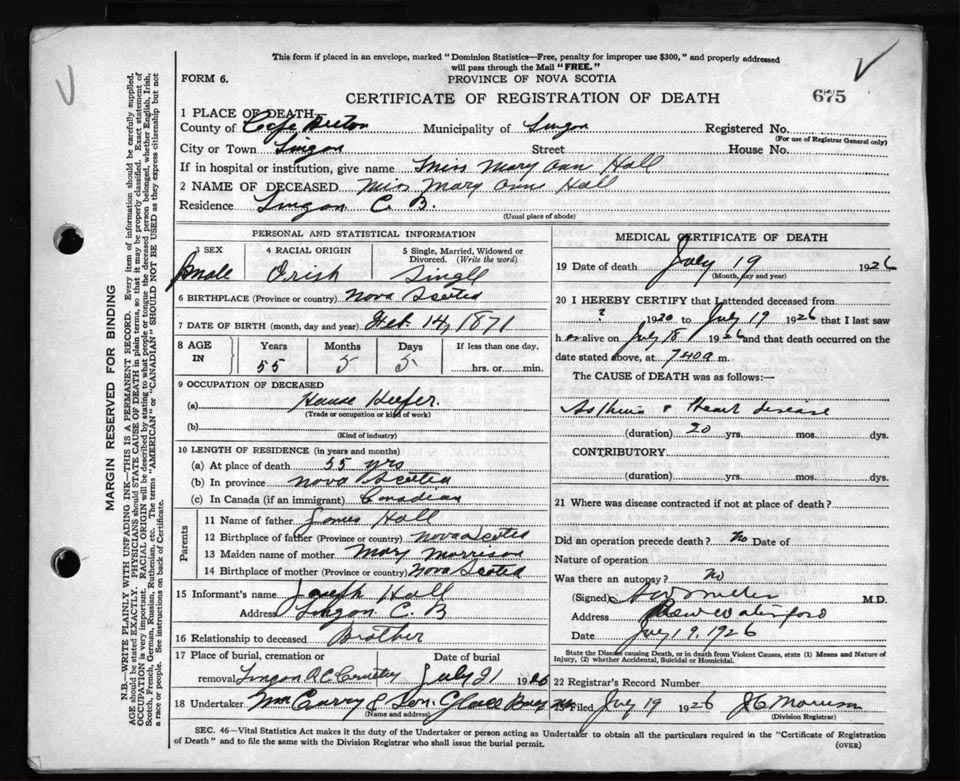 This form if placed in an envelope, marked "Dominion Statistics—Free, penalty for improper use $300," and properly addressed
will pass through the Mail "FREE."
FORM 6.
PROVINCE OF NOVA SCOTIA
CERTIFICATE OF REGISTRATION OF DEATH
675
1 PLACE OF DEATH
County of Cape Breton Municipality of Lingan Registered No.
(For use of Registrar General only)
City or Town Lingan Street House No.
If in hospital or institution, give name Miss Mary Ann Hall
2 NAME OF DECEASED Miss Mary Ann Hall
Residence Lingan C. B.
(Usual place of abode)
PERSONAL AND STATISTICAL INFORMATION
3 SEX 4 RACIAL ORIGIN 5 Single, Married, Widowed or Divorced. (Write the word)
female Irish Single
6 BIRTHPLACE (Province or country) Nova Scotia
7 DATE OF BIRTH (month, day and year) Feb. 14, 1871
8 AGE IN Years Months Days If less than one day,
55 5 5 hrs. or min.
9 OCCUPATION OF DECEASED
(a) House Keeper.
(Trade or occupation or kind of work)
(b)
(Kind of industry)
10 LENGTH OF RESIDENCE (in years and months)
(a) At place of death 55 yrs
(b) In province Nova Scotia
(c) In Canada (if an immigrant) Canadian
Parents
11 Name of father James Hall
12 Birthplace of father (Province or country) Nova Scotia
13 Maiden name of mother Mary Morrison
14 Birthplace of mother (Province or country) Nova Scotia
15 Informant's name Joseph Hall
Address Lingan C. B
16 Relationship to deceased Brother
17 Place of burial, cremation or Date of burial
removal Lingan R C Cemetry July 21 1926
18 Undertaker McCurry & Son. Glace Bay N.S.
(Name and address)
MEDICAL CERTIFICATE OF DEATH
19 Date of death July 19 1926
(Month, day and year)
20 I HEREBY CERTIFY that I attended deceased from
? 1920 to July 19 1926 that I last saw
h er alive on July 18 1926 and that death occurred on the
date stated above, at 740 a m.
The CAUSE of DEATH was as follows:
Asthma & Heart disease
(duration) 20 yrs. mos. dys.
CONTRIBUTORY
(duration) yrs. mos. dys.
21 Where was disease contracted if not at place of death?
Did an operation precede death? No Date of
Nature of operation
Was there an autopsy? No
(Signed) M.D.
Address New Waterford
Date July 19, 1926
State the Disease causing Death, or in death from Violent Causes, state (1) Means and Nature of
Injury, (2) whether Accidental, Suicidal or Homicidal.
22 Registrar's Record Number
Filed July 19 1926 J C Morrison
(Division Registrar)
SEC. 46—Vital Statistics Act makes it the duty of the Undertaker or person acting as Undertaker to obtain all the particulars required in the "Certificate of Registration
of Death" and to file the same with the Division Registrar who shall issue the burial permit.
(OVER)
MARGIN RESERVED FOR BINDING
N.B.—WRITE PLAINLY WITH UNFADING INK—THIS IS A PERMANENT RECORD. Every item of information should be carefully supplied.
AGE should be stated EXACTLY. PHYSICIANS should STATE CAUSE OF DEATH in plain terms, so that it may be properly classified. Exact statement of
OCCUPATION is very important. RACIAL ORIGIN will be described by stating to what people or tongue the deceased person belonged, whether English, Irish,
Scotch, French, German, Russian, Ruthenian, etc. The terms "AMERICAN" or "CANADIAN" SHOULD NOT BE USED as they express citizenship but not
a race or people. See instructions on back of Certificate.